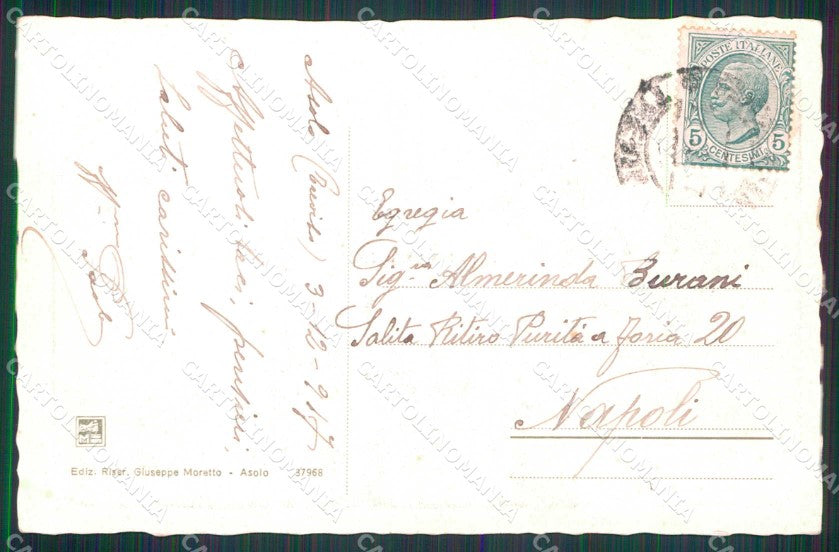 Asolo (Treviso) 3-12-917
Affettuosi baci, pensieri,
Saluti carissimi
Egregia
Sig.na Almerinda Burani
Salita Ritiro Purità a Foria 20
Napoli
POSTE ITALIANE
5 5
CENTESIMI
Ediz. Riser. Giuseppe Moretto - Asolo 37968
CARTOLINOMANIA